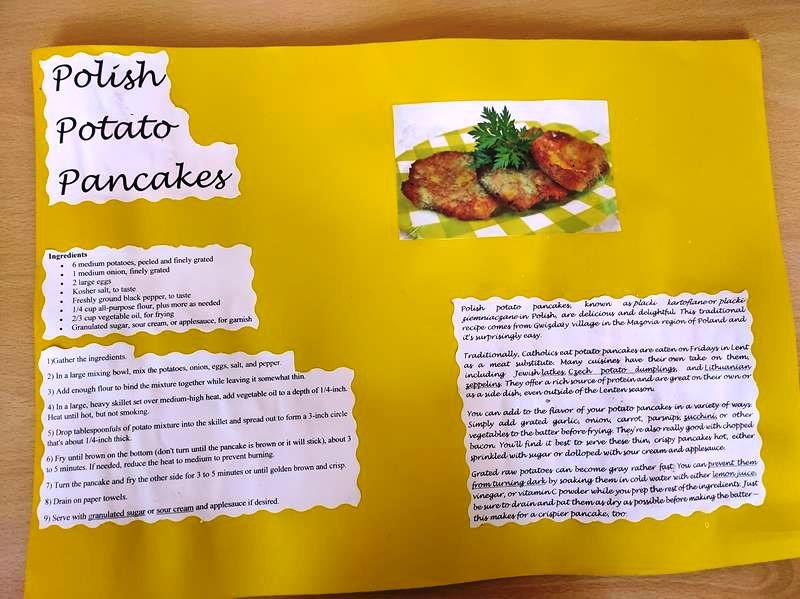 Polish
Potato
Pancakes
Ingredients
• 6 medium potatoes, peeled and finely grated
• 1 medium onion, finely grated
• 2 large eggs
• Kosher salt, to taste
• Freshly ground black pepper, to taste
• 1/4 cup all-purpose flour, plus more as needed
• 2/3 cup vegetable oil, for frying
• Granulated sugar, sour cream, or applesauce, for garnish
1)Gather the ingredients.
2) In a large mixing bowl, mix the potatoes, onion, eggs, salt, and pepper.
3) Add enough flour to bind the mixture together while leaving it somewhat thin.
4) In a large, heavy skillet set over medium-high heat, add vegetable oil to a depth of 1/4-inch.
Heat until hot, but not smoking.
5) Drop tablespoonfuls of potato mixture into the skillet and spread out to form a 3-inch circle
that's about 1/4-inch thick.
6) Fry until brown on the bottom (don't turn until the pancake is brown or it will stick), about 3
to 5 minutes. If needed, reduce the heat to medium to prevent burning.
7) Turn the pancake and fry the other side for 3 to 5 minutes or until golden brown and crisp.
8) Drain on paper towels.
9) Serve with granulated sugar or sour cream and applesauce if desired.
Polish potato pancakes, known as placki kartoflane or placki
ziemniaczane in Polish, are delicious and delightful. This traditional
recipe comes from Gwizdały village in the Mazovia region of Poland and
it's surprisingly easy.
Traditionally, Catholics eat potato pancakes are eaten on Fridays in Lent
as a meat substitute. Many cuisines have their own take on them,
including Jewish latkes, Czech potato dumplings, and Lithuanian
seppelins. They offer a rich source of protein and are great on their own or
as a side dish, even outside of the Lenten season.
You can add to the flavor of your potato pancakes in a variety of ways.
Simply add grated garlic, onion, carrot, parsnips, zucchini, or other
vegetables to the batter before frying. They're also really good with chopped
bacon. You'll find it best to serve these thin, crispy pancakes hot, either
sprinkled with sugar or dolloped with sour cream and applesauce.
Grated raw potatoes can become gray rather fast. You can prevent them
from turning dark by soaking them in cold water with either lemon juice,
vinegar, or vitamin C powder while you prep the rest of the ingredients. Just
be sure to drain and pat them as dry as possible before making the batter—
this makes for a crispier pancake, too.